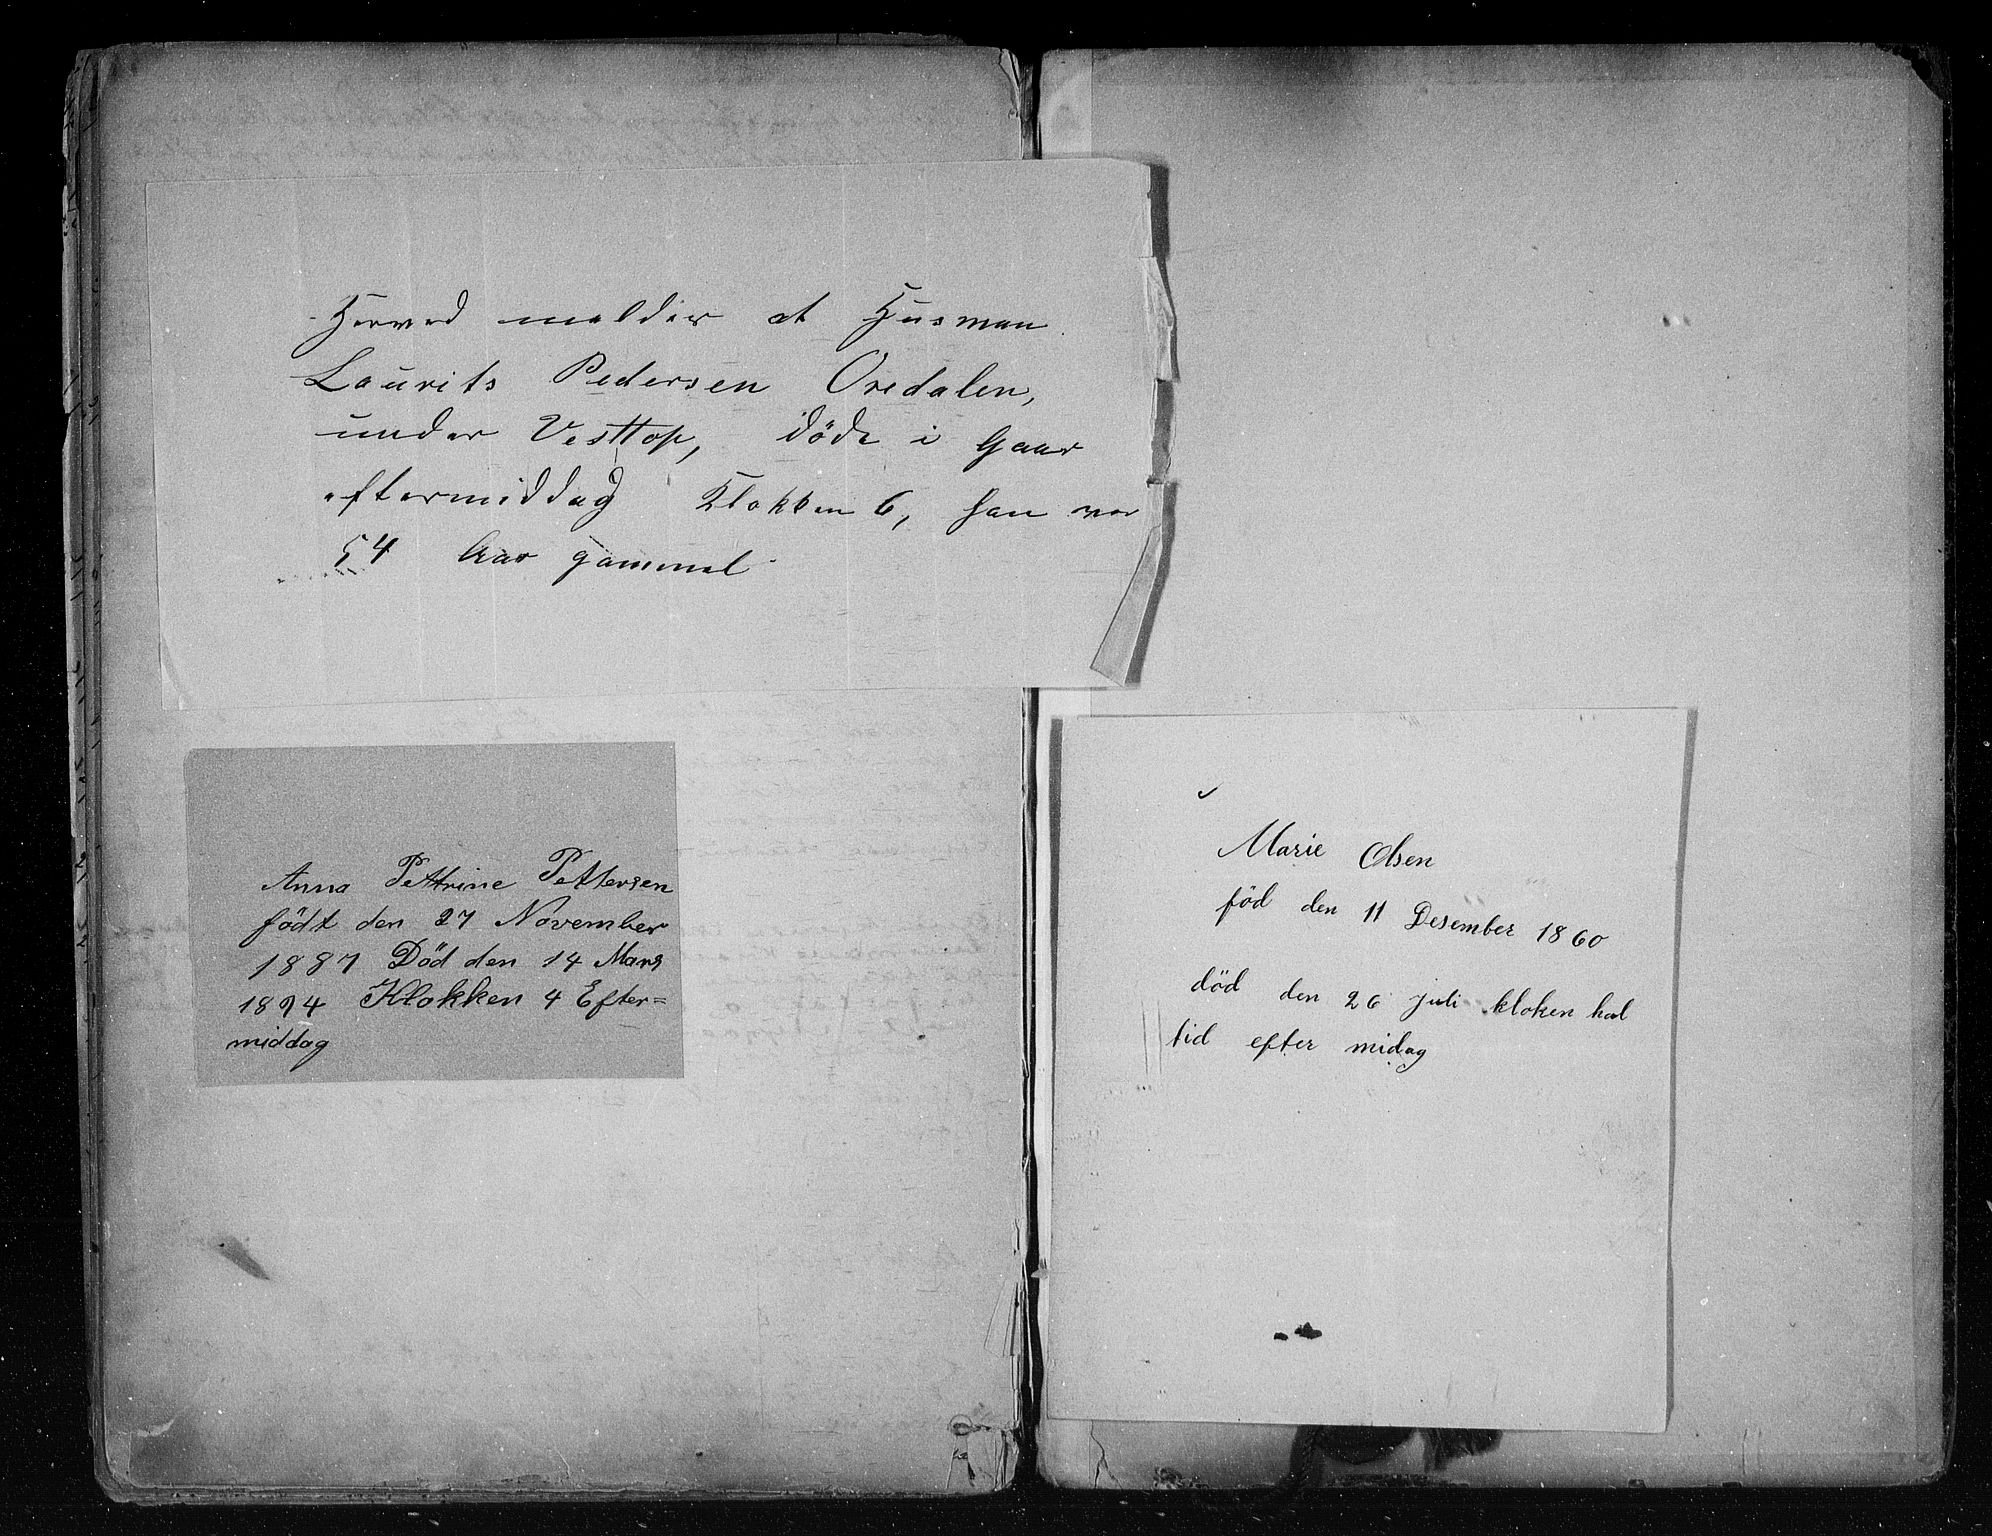 Herved melder at Husman
Laurits Pedersen Oredalen,
under Vesttop, døde i Gaar
eftermiddag Klokken 6, han var
54 Aar gammel
Anna Pettrine Pettersen
födt den 27 November
1887 Död den 14 Mars
1894 Klokken 4 Efter=
middag
Marie Olsen
föd den 11 Desember 1860
död den 26 juli kloken hal
tid efter midag